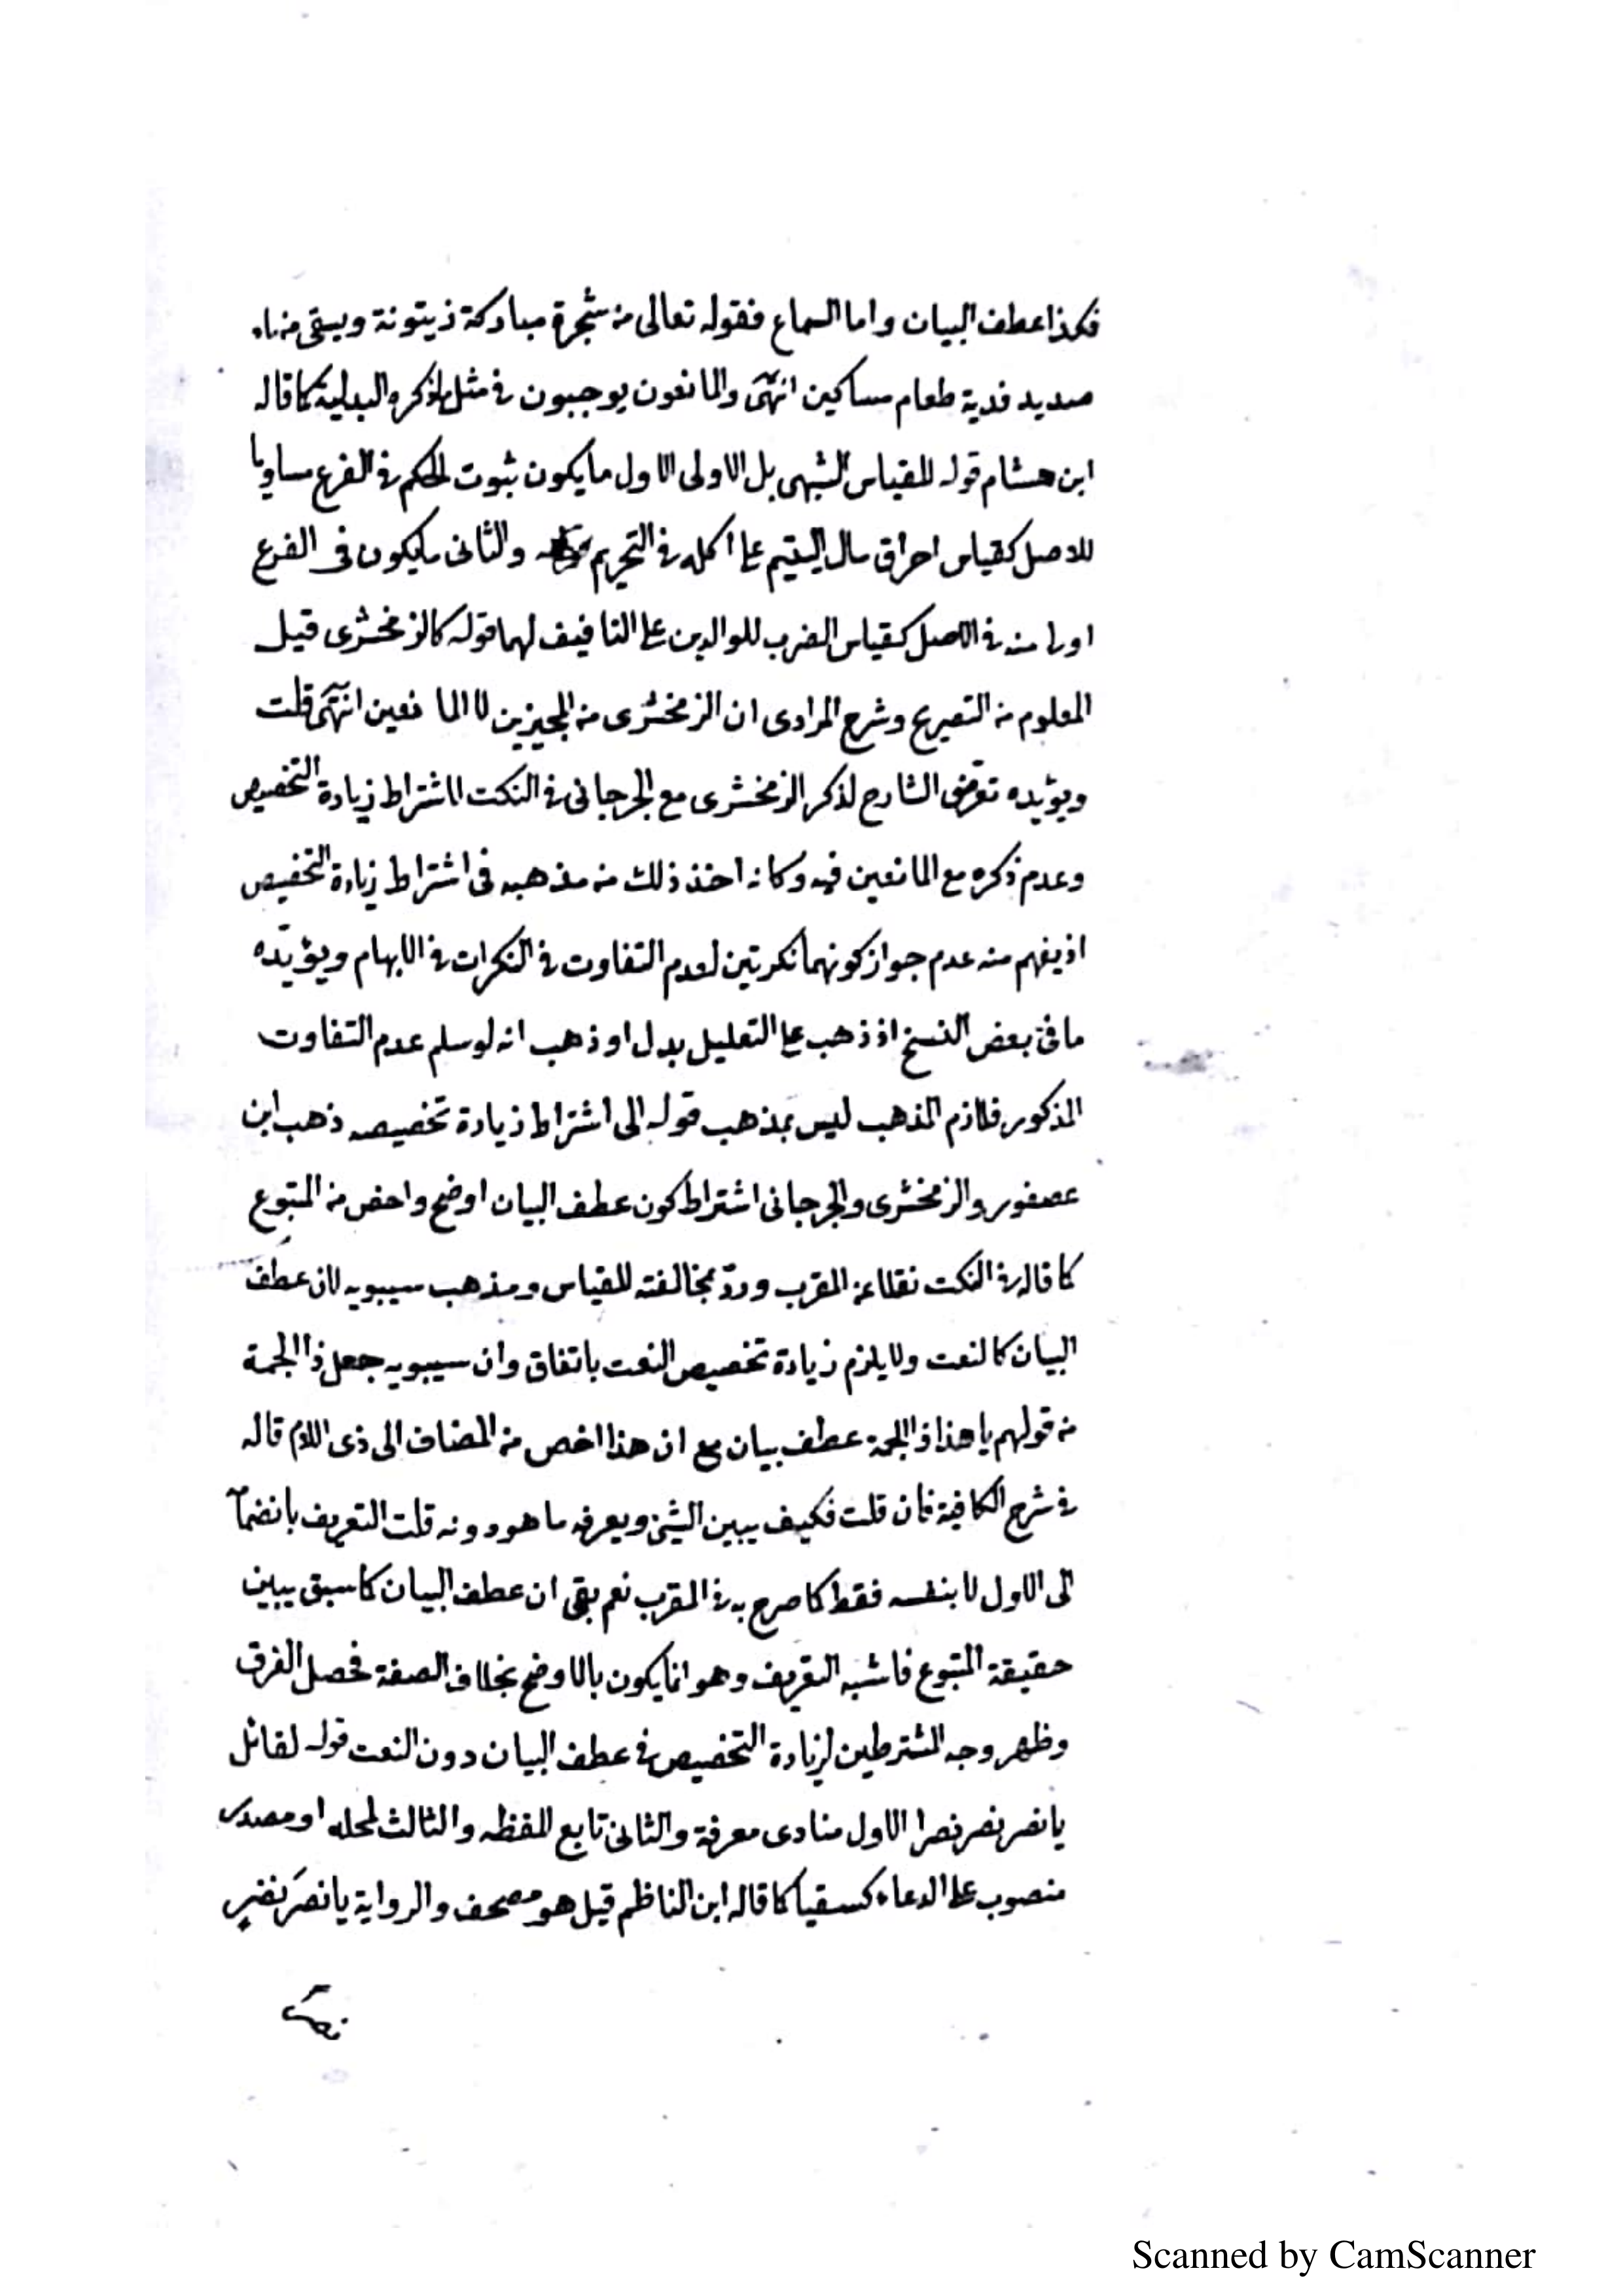 فكذا عطف البيان واما السماع فقوله تعالى من شجرة مباركة زيتونة ويسقى من ماء
صديد فدية طعام مساكين انتهى والمانعون يوجبون في مثل ما ذكره البدلية كما قاله
ابن هشام قوله للقياس الشبهى بل الاولى الاول ما يكون ثبوت الحكم في الفرع مساويا
للاصل كقياس احراق مال اليتيم على اكله في التحريم والثانى ما يكون فى الفرع
اولى منه في الاصل كقياس الضرب للوالدين على التافيف لهما قوله كالزمخشرى قيل
المعلوم من التصريح وشرح المرادى ان الزمخشرى من المجيزين لا المانعين انتهى قلت
ويؤيده تعرّض الشارح لذكر الزمخشرى مع الجرجانى في النكت لاشتراط زيادة التخصيص
وعدم ذكره مع المانعين فيه وكانه اخذ ذلك من مذهبه فى اشتراط زيادة التخصيص
اذ يفهم منه عدم جواز كونهما نكرتين لعدم التفاوت في النكرات في الابهام ويؤيّده
ما فى بعض النسخ اذ ذهب على التعليل بدل او ذهب انه لو سلم عدم التفاوت
المذكور فلازم المذهب ليس بمذهب قوله الى اشتراط زيادة تخصيصه ذهب ابن
عصفور والزمخشرى والجرجانى اشتراط كون عطف البيان اوضح واخص من المتبوع
كما قاله في النكت نقلا عن المقرب وردّ بمخالفته للقياس ومذهب سيبويه لان عطف
البيان كالنعت ولا يلزم زيادة تخصيص النعت باتفاق وان سيبويه جعل ذا الجمة
من قولهم يا هذا ذا الجمة عطف بيان مع ان هذا اخص من المضاف الى ذى اللام قاله
في شرح الكافية فان قلت فكيف يبين الشئ ويعرفه ما هو دونه قلت التعريف بانضمامه
الى الاول لا بنفسه فقط كما صرح به في المقرب نعم بقى ان عطف البيان كما سبق يبين
حقيقة المتبوع فاشبه التعريف وهو انما يكون بالاوضح بخلاف الصفة فحصل الفرق
وظهر وجه المشترطين لزيادة التخصيص في عطف البيان دون النعت قوله لقائل
يا نصر نصر نصرا الاول منادى معرفة والثانى تابع للفظه والثالث لمحله او مصدر
منصوب على الدعاء كسقيا كما قاله ابن الناظم قيل هو مصحف والرواية يا نصرَ نضرٍ
Scanned by CamScanner